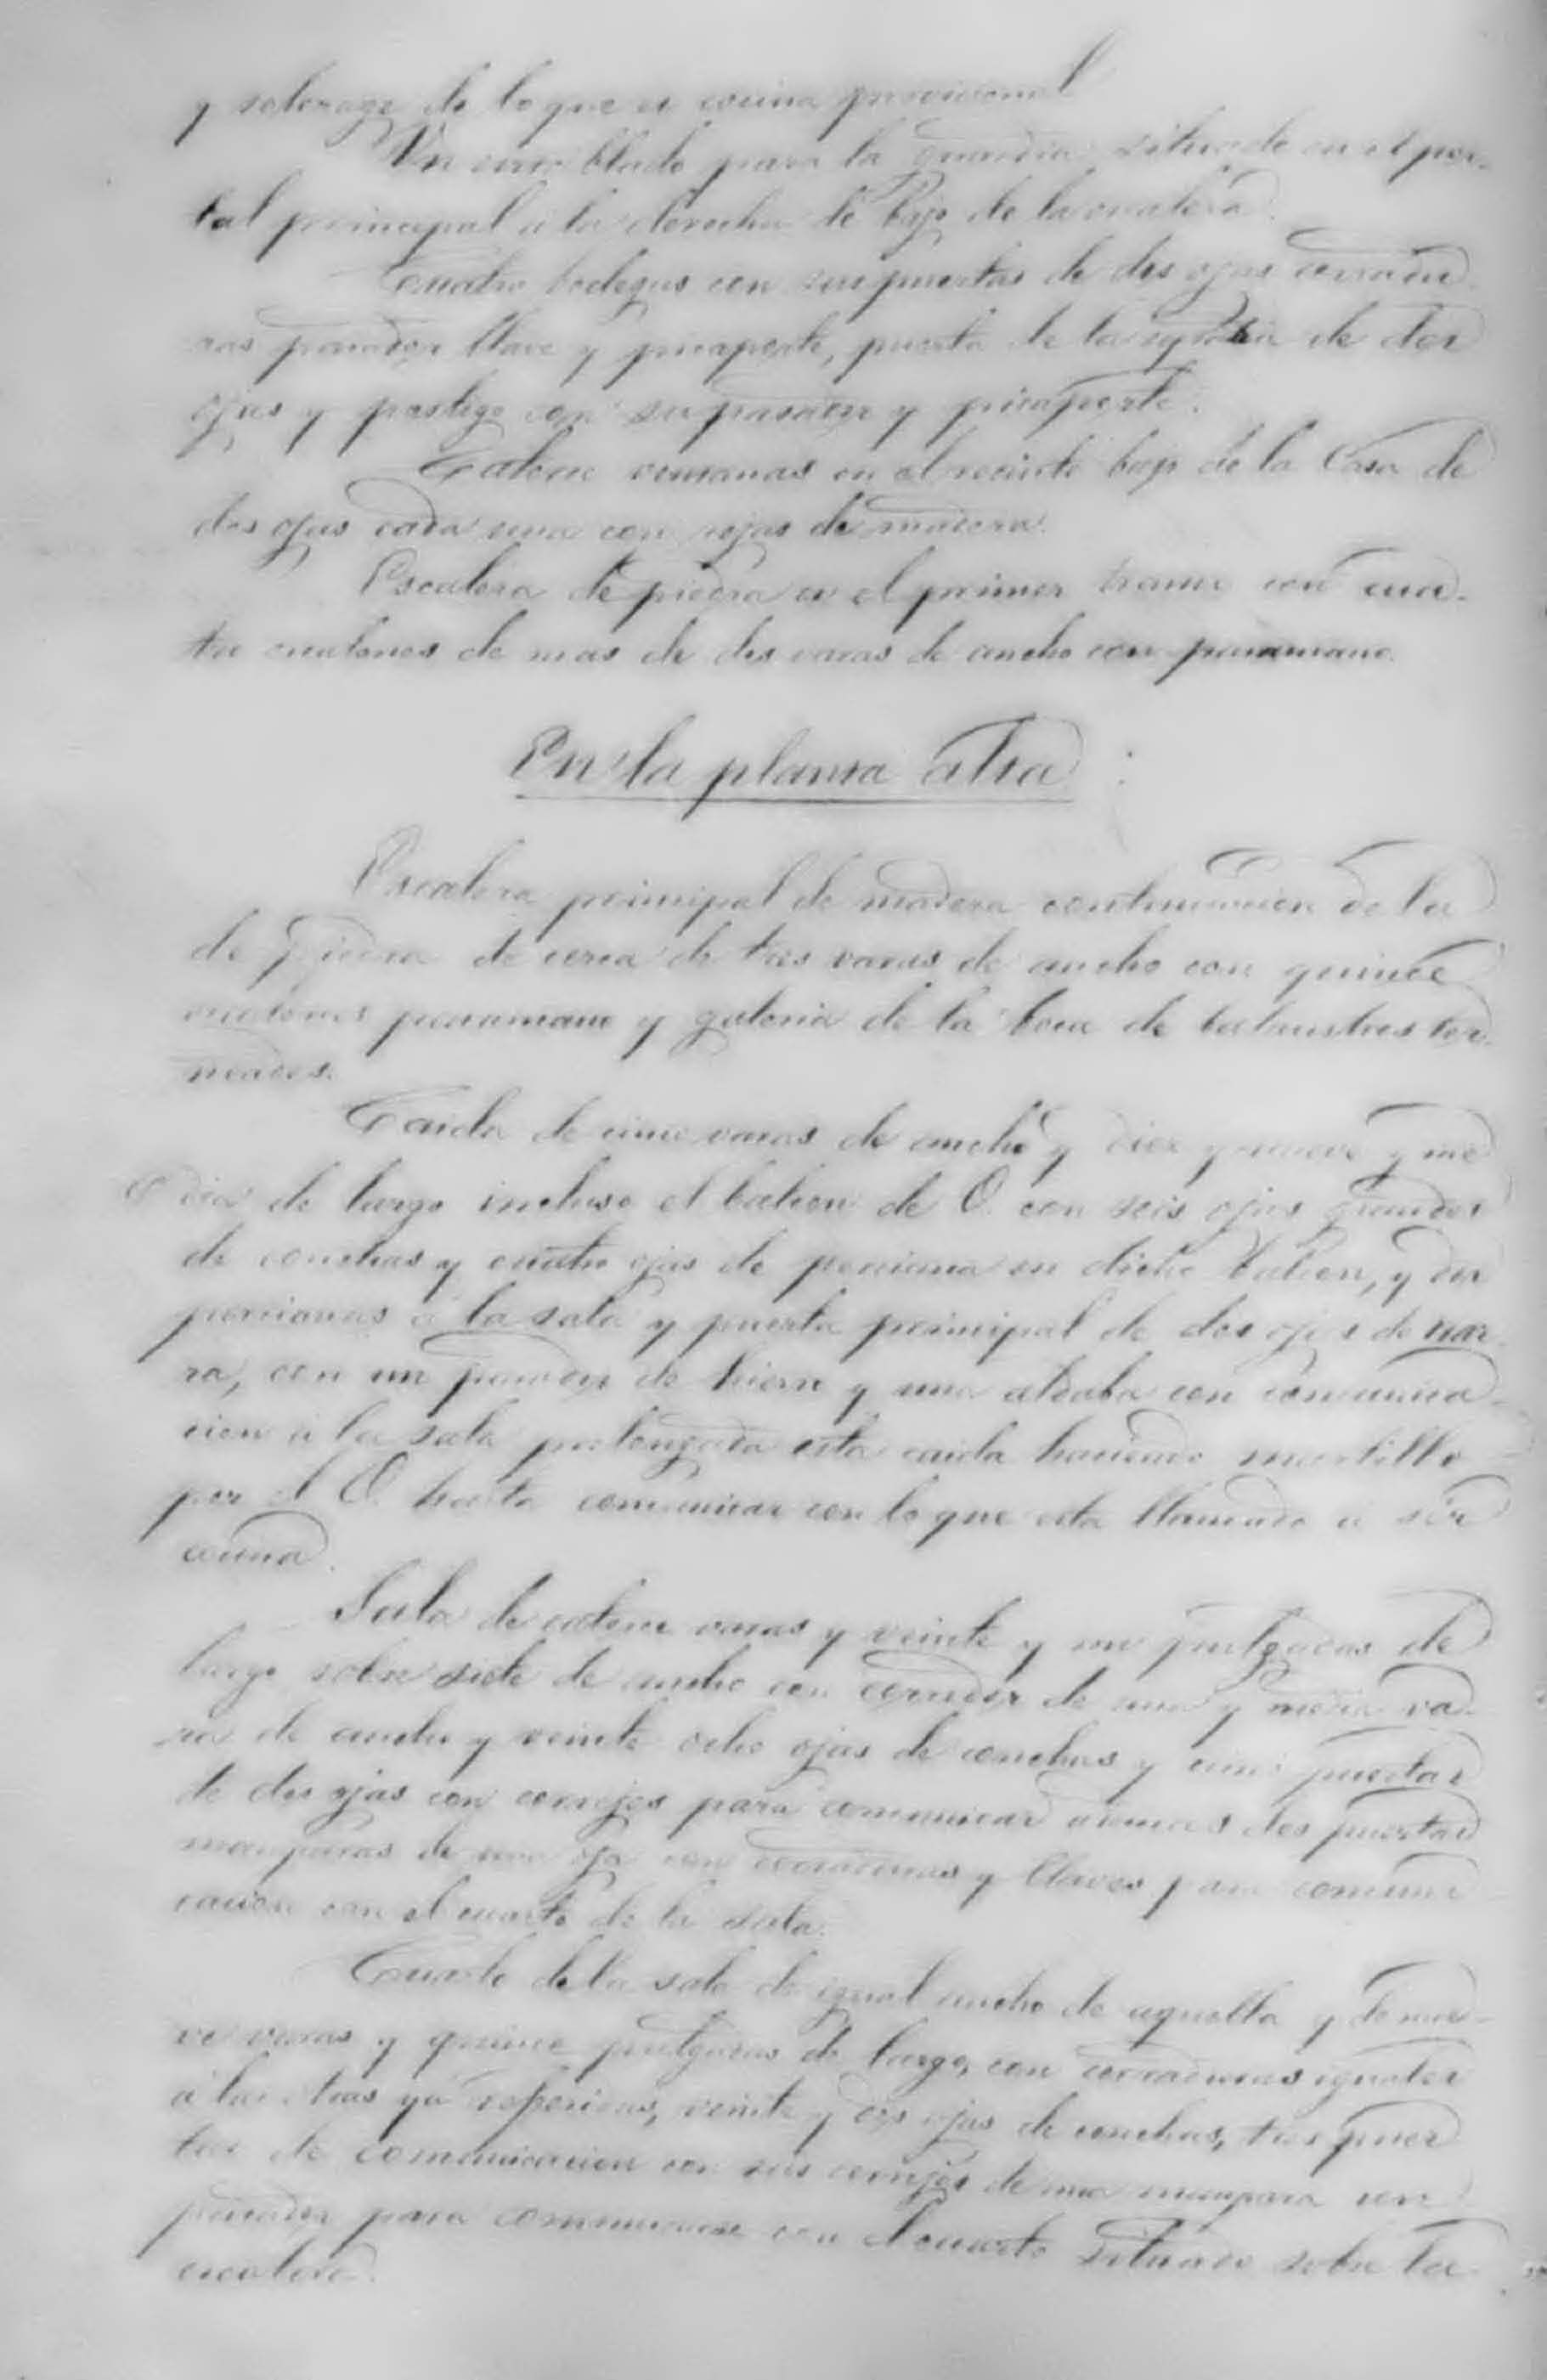 y solerage de lo que es cocina provicional
Un entablado para la guardia situado en el por-
tal principal a la derecha de bajo de la escalera.
Cuatro bodegas con sus puertas de dos ojas cerradu
ras pasador llave y picaporte, puerta de la de dos
ojas y postigo con su pasador y picaporte.
Catorce ventanas en el recinto bajo de la Casa de
dos ojas cada una con rejas de madera.
Escalera de piedra en el primer tramo con cua-
tro escalones de mas de dos varas de ancho con pasamano.
En la planta alta
Escalera principal de madera continuacion de la
de piedra de cerca de tres varas de ancho con quince
escalones pasamano y galeria de la boca de balaustres tor-
neados.
Caida de cinco varas de ancho y diez y nueve y me
dia de largo incluso el balcon de O. con seis ojas grandes
de conchas y cuatro ojas de persiana en dicho balcon, y dos
persianas á la sala y puerta principal de dos ojas de nar-
ra, con un pasador de hierro y una aldaba con comunica-
cion á la sala prolongada esta caida haciendo martillo
por el O. hasta comunicar con lo que esta llamado á ser
cocina.
Sala de catorce varas y veinte y un pulgadas de
largo sobre siete de ancho con corredor de una y media va-
ra de ancho y veinte ocho ojas de conchas y cinco puertas
de dos ojas con cerrojos para comunicar ademas dos puertas
mamparas de una oja con cerraduras y llaves para comuni
cacion con el cuarto de la sala.
Cuarto de la sala de igual ancho de aquella y de nue-
ve varas y quince pulgadas de largo, con cerraduras iguales
á las otras ya referidas, veinte y dos ojas de conchas, tres puer
tas de comunicacion con sus cerrojos de una mampara con
pasador para comunicarse con el cuarto situado sobre la
escalera.